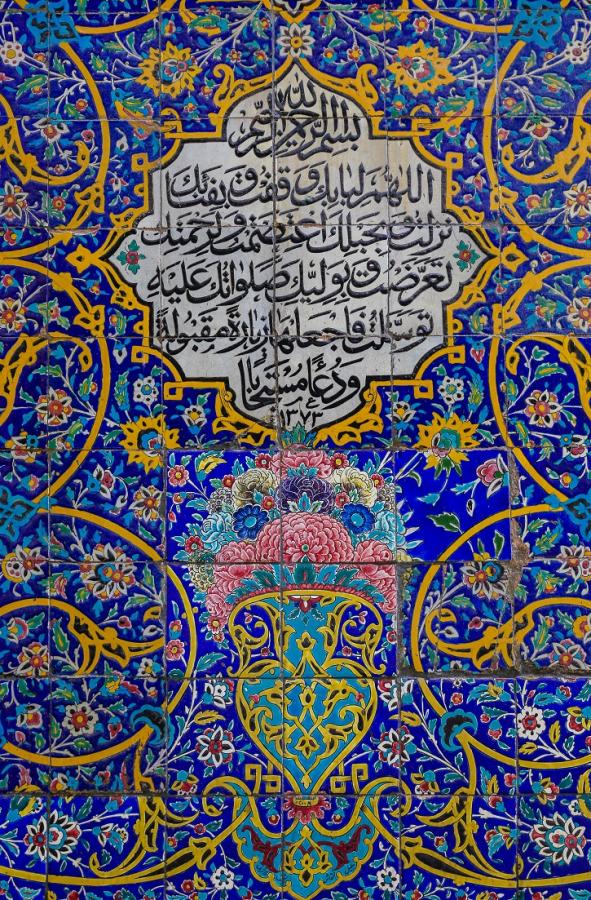 بسم الله الرحمن الرحیم
اللهم لبابك وقفت و بفنائك
نزلت و بحبلك اعتصمت و لرحمتك
تعرضت و بوليك صلواتك عليه
توسلت فاجعلها زيارةً مقبولةً
ودعًا مستجابا
١٣٧٣